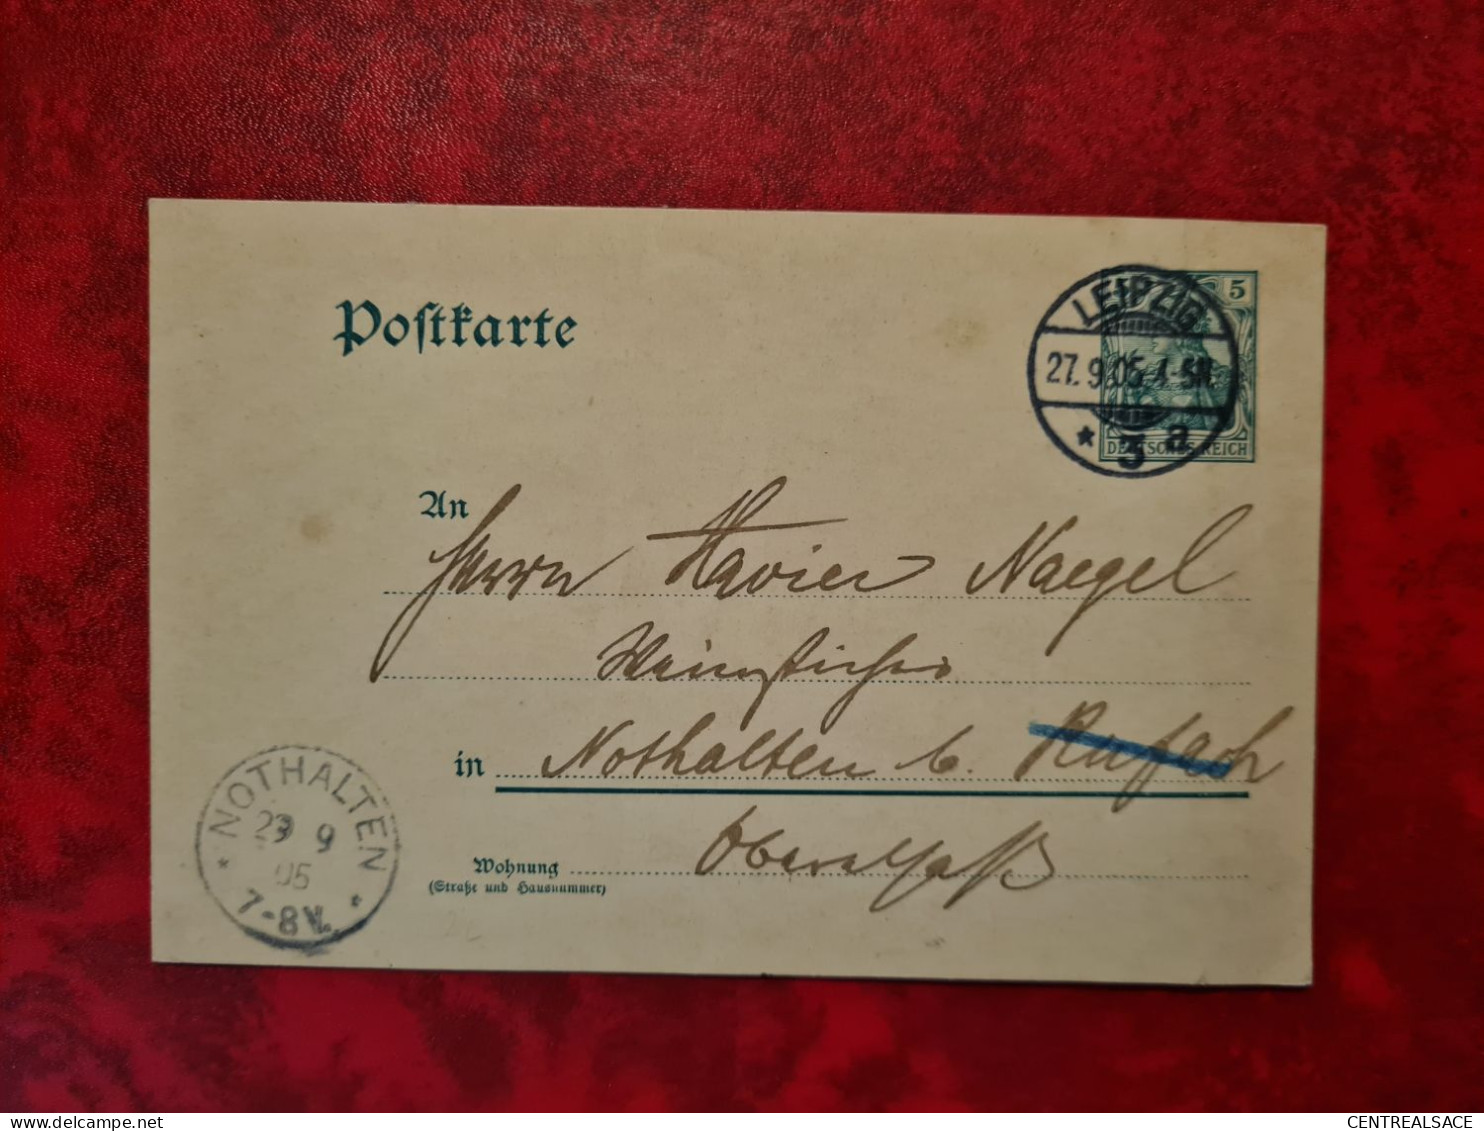 Postkarte
5
LEIPZIG
27.9.05 4-5N.
* 3 a
DEUTSCHES REICH
An
Herrn Xavier Naegel
in Nothalten b. Rufach
Oberelsaß
Wohnung
(Straße und Hausnummer)
NOTHALTEN
29 9
05
7-8V.
CENTREALSACE